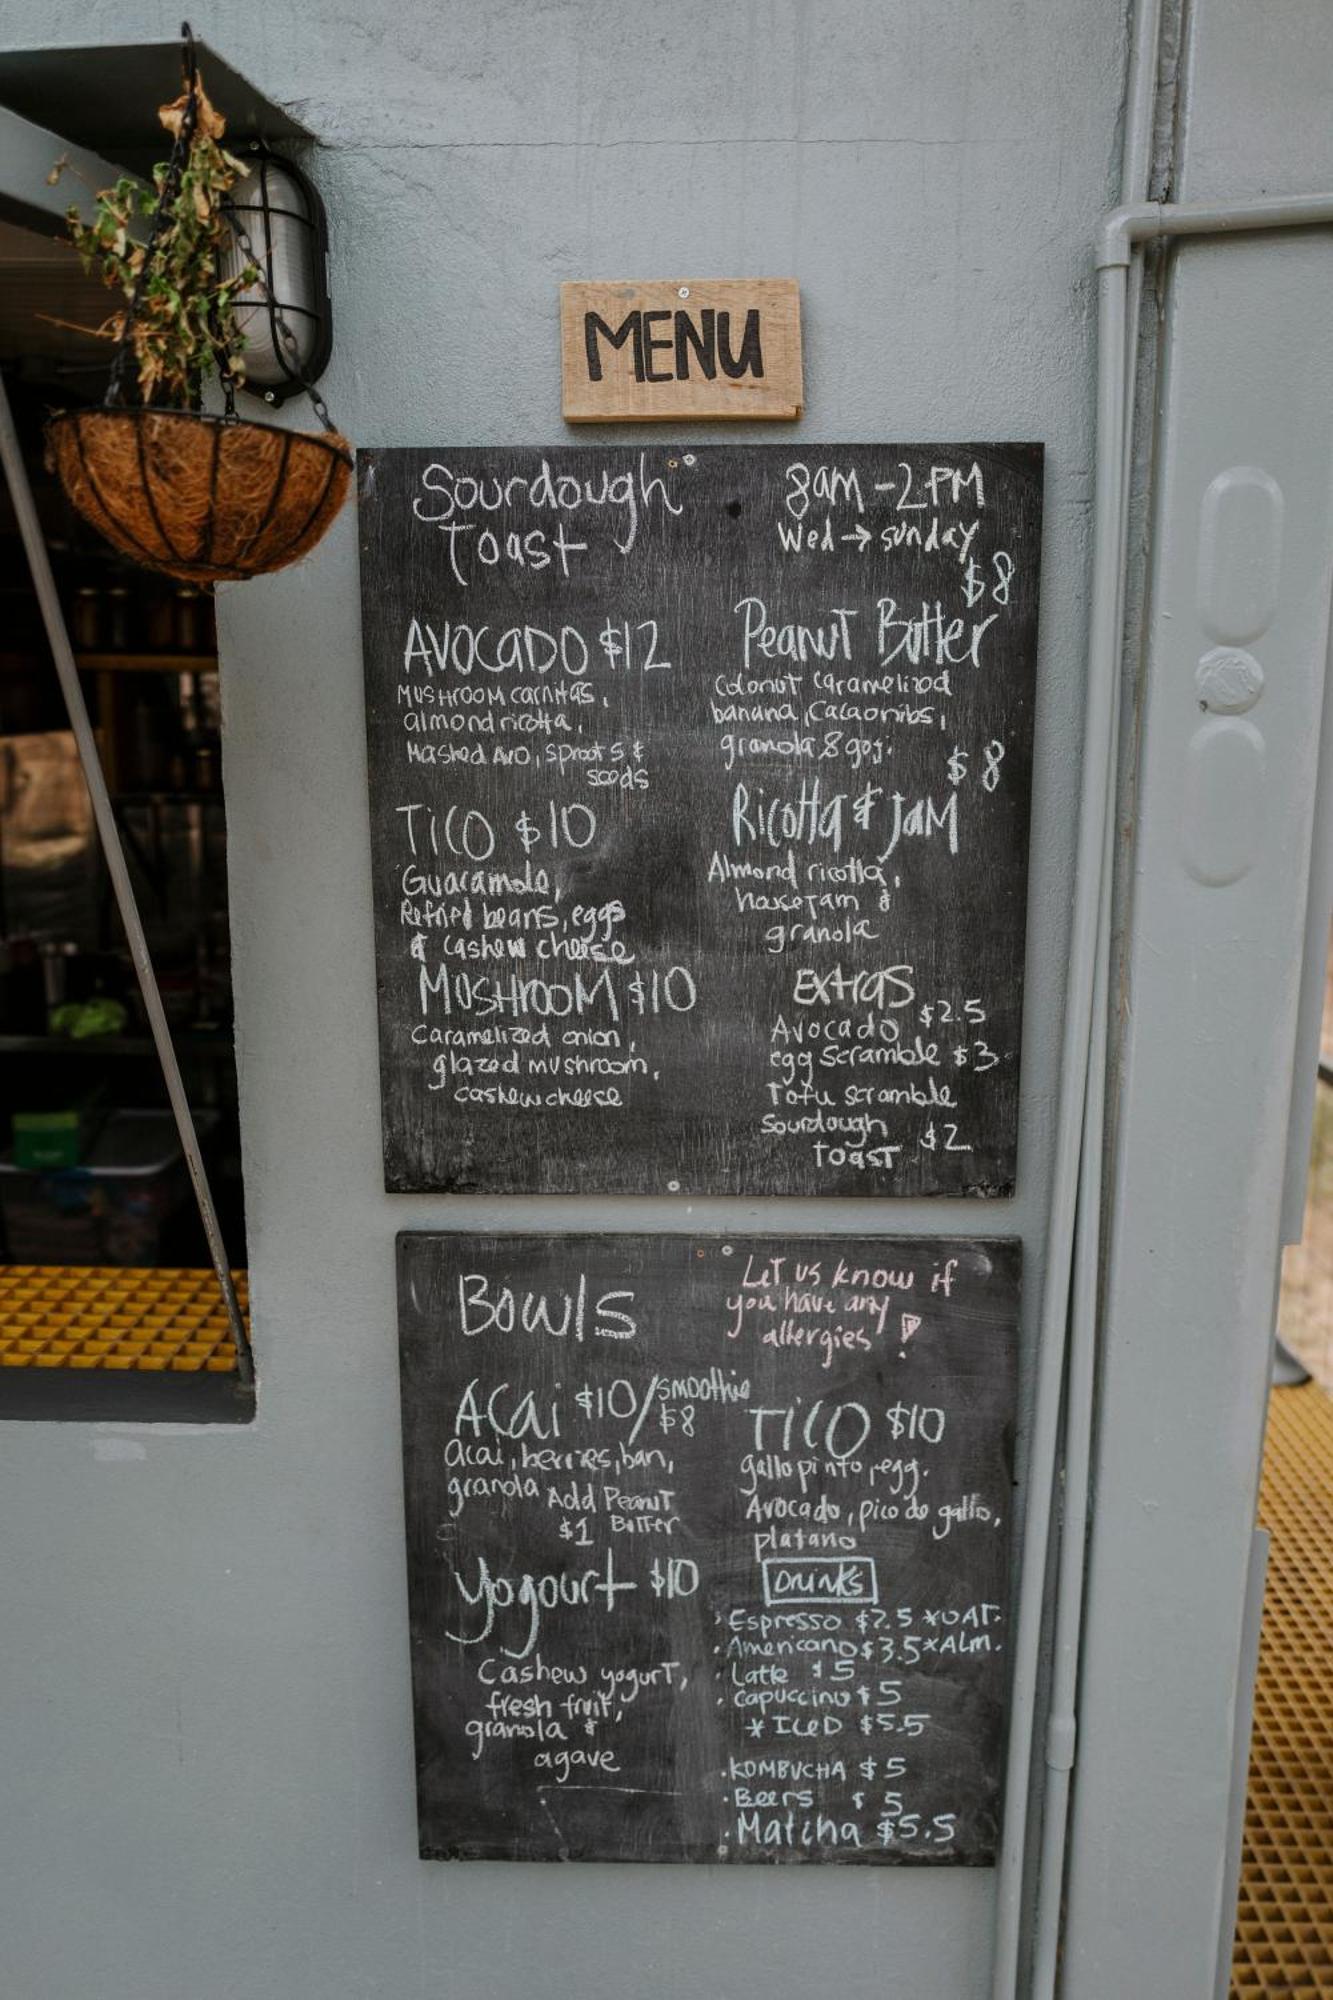 MENU
Sourdough
Toast
8am - 2PM
Wed → sunday
AVOCADO $12
MUSHROOM carnitas,
almond ricotta,
Mashed Avo, sprouts &
seeds
TiCO $10
Guacamole,
Refried beans, eggs
& cashew cheese
MUSHROOM $10
Caramelized onion,
glazed mushroom,
cashew cheese
$8
Peanut Butter
Coconut caramelized
banana, Cacao nibs,
granola & goji.
$8
Ricotta & JaM
Almond ricotta,
house jam &
granola
Extras
Avocado $2.5
egg scramble $3
Tofu scramble
Sourdough
toast $2
Bowls
Let us know if
you have any
allergies !
ACai $10/smoothie
$8
acai, berries, ban,
granola Add Peanut
$1 Butter
Yogourt $10
Cashew yogurt,
fresh fruit,
granola &
agave
TiCO $10
gallo pinto, egg.
Avocado, pico de gallo,
platano
Drinks
· Espresso $2.5 *OAT.
· Americano $3.5 *ALM.
· Latte $5
· capuccino $5
* ICED $5.5
· KOMBUCHA $5
· Beers $5
· Matcha $5.5